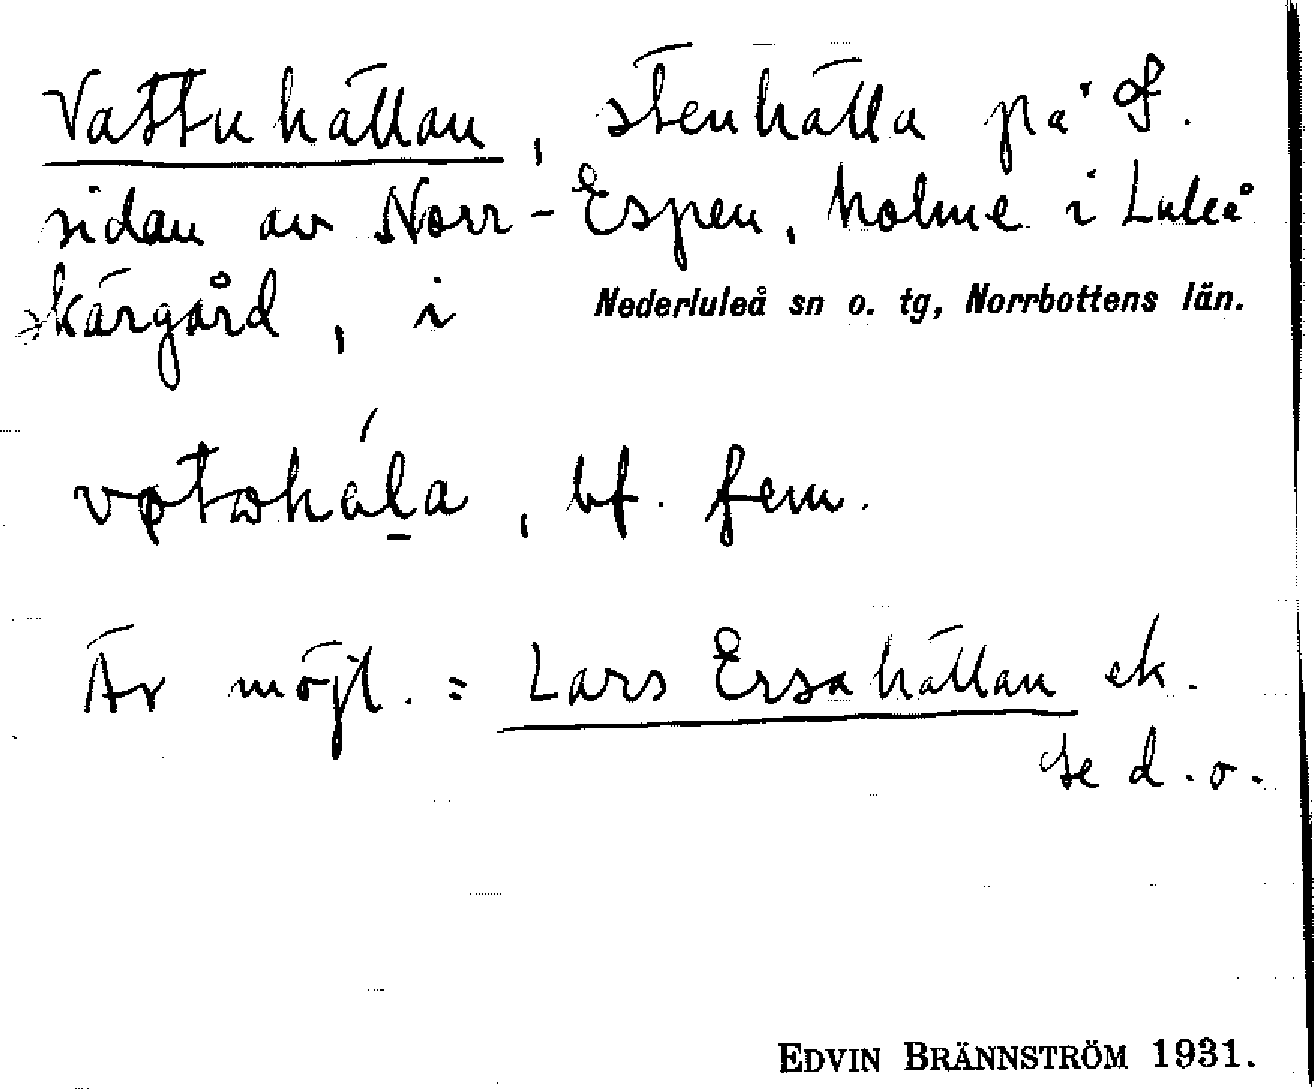 Vattuhällan, stenhälla på öf.
sidan av Norr-Espen, holme i Luleå
skärgård, i Nederluleå sn o. tg, Norrbottens län.
bf. fem.
Är möjl. = Lars Ersahällan ek.
se d.o.
EDVIN BRÄNNSTRÖM 1931.